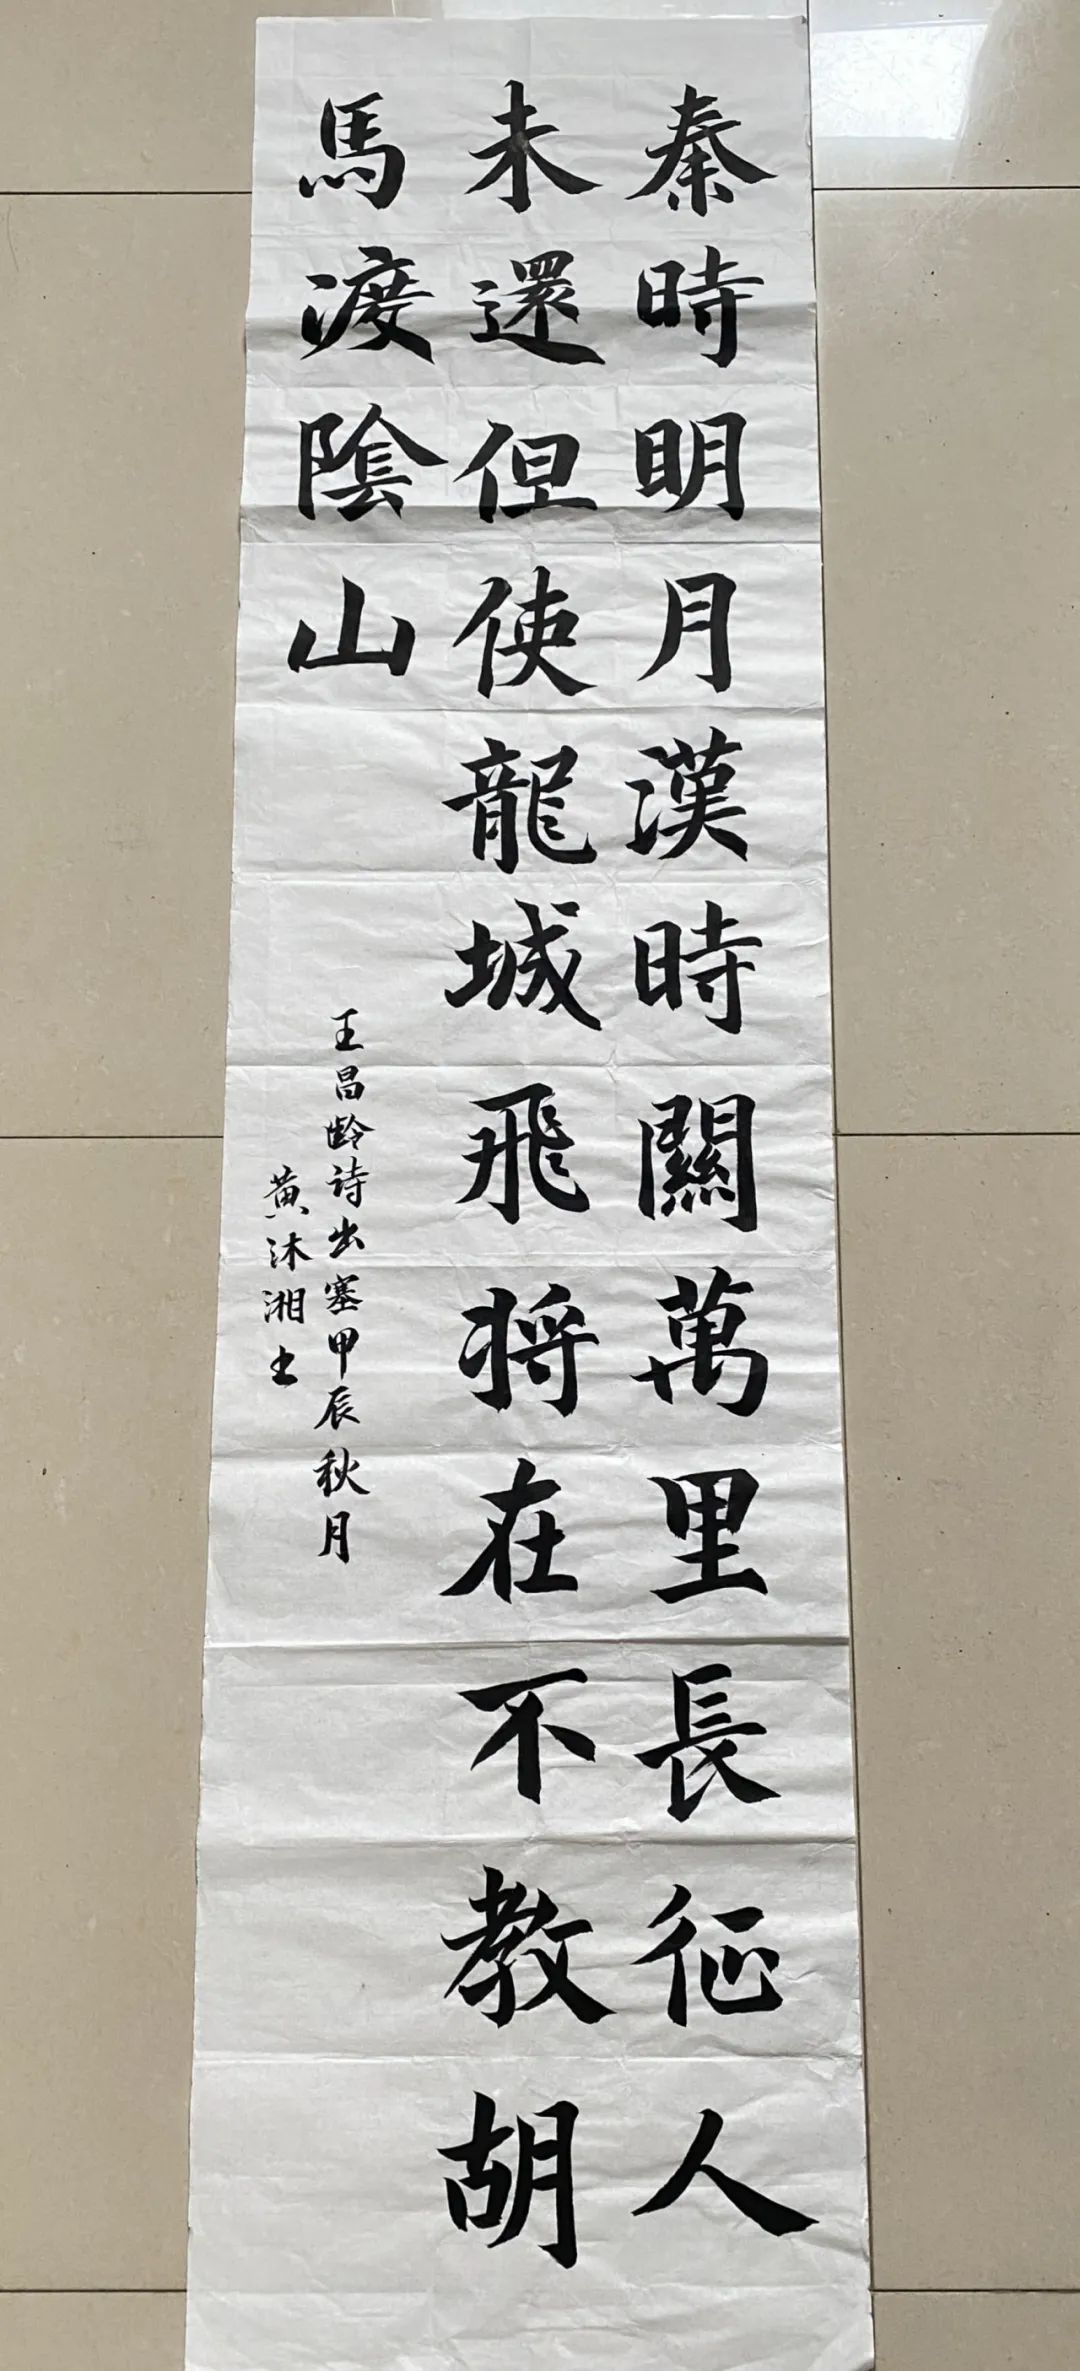 秦時明月漢時關萬里長征人
未還但使龍城飛將在不教胡
馬渡陰山
王昌齡诗出塞甲辰秋月
黄沐湘书